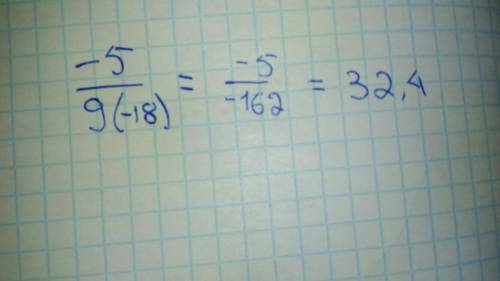 -5/9(-18) = -5/-162 = 32,4